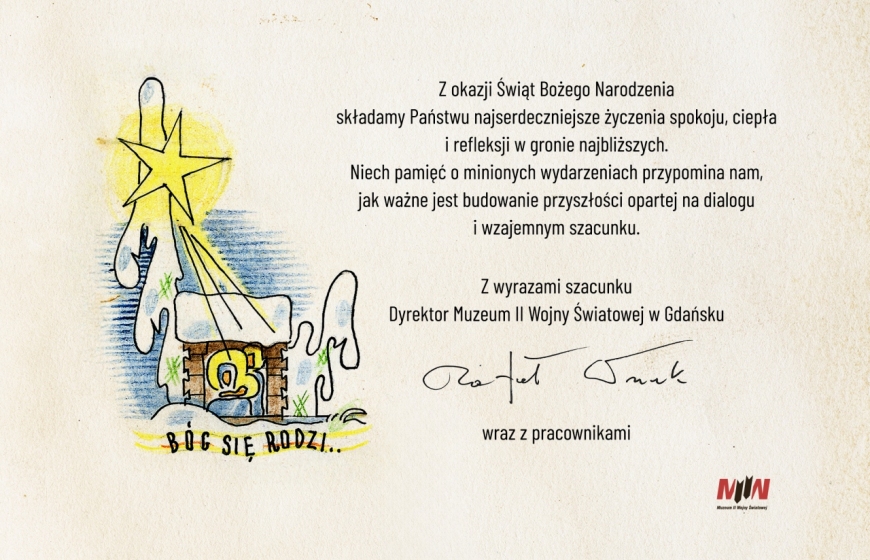 Z okazji Świąt Bożego Narodzenia
składamy Państwu najserdeczniejsze życzenia spokoju, ciepła
i refleksji w gronie najbliższych.
Niech pamięć o minionych wydarzeniach przypomina nam,
jak ważne jest budowanie przyszłości opartej na dialogu
i wzajemnym szacunku.
Z wyrazami szacunku
Dyrektor Muzeum II Wojny Światowej w Gdańsku
Rafał Wnuk
wraz z pracownikami
BÓG SIĘ RODZI..
MIIW
Muzeum II Wojny Światowej